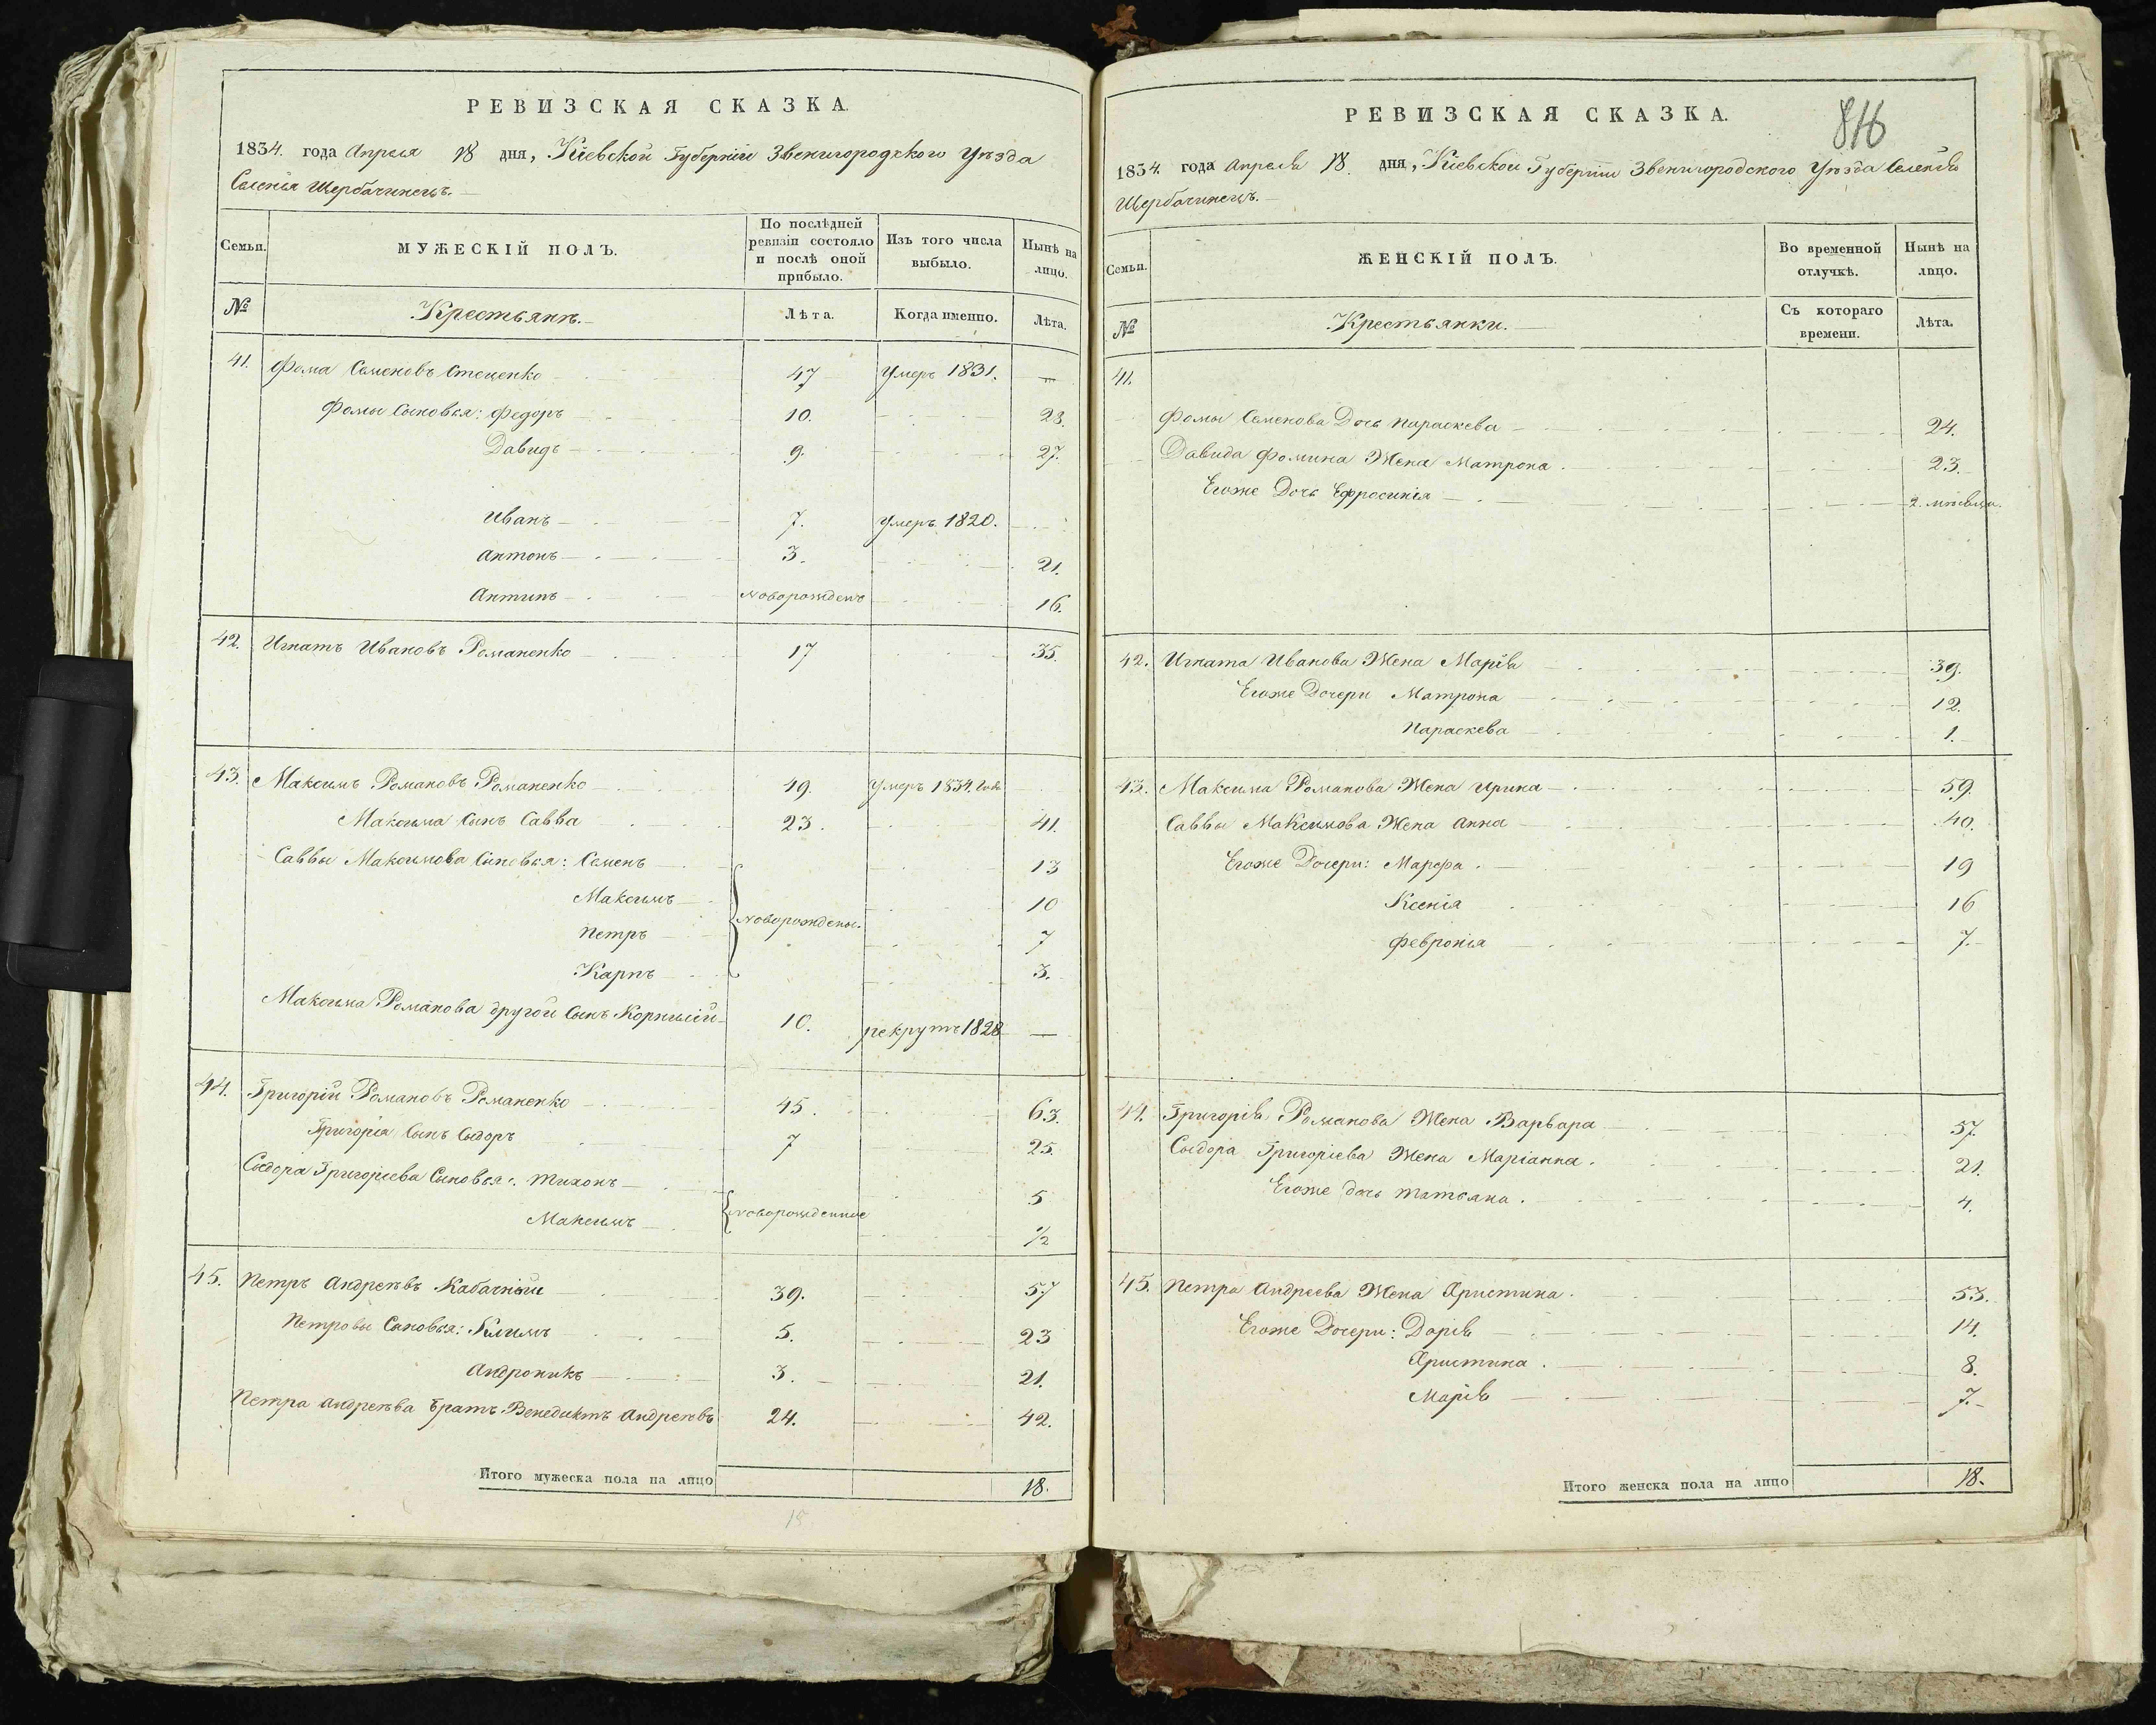 РЕВИЗСКАЯ СКАЗКА.
1834. года Апреля 18 дня, Кіевской Губерніи Звенигородского Уезда
Селенія Щербачинецъ.
Семьи. МУЖЕСКІЙ ПОЛЪ. По послѣдней ревизіи состояло и послѣ оной прибыло. Изъ того числа выбыло. Нынѣ на лицо.
№ Крестьянъ. Лѣта. Когда именно. Лѣта.
41. Фома Семеновъ Стеценко 47 Умеръ 1831. —
Фомы Сыновья: Федоръ 10. 28.
Давидъ 9. 27.
Иванъ 7. умеръ 1820.
Антонъ 3. 21.
Антипъ Новорожденъ 16.
42. Игнатъ Ивановъ Романенко 17 35.
43. Максимъ Романовъ Романенко 49. умеръ 1834. года
Максима Сынъ Савва 23. 41.
Саввы Максимова Сыновья: Семенъ 13
Максимъ 10
Новорождены.
Петръ 7
Карпъ 3.
Максима Романова другой Сынъ Корнилій 10. рекрутъ 1828 —
44. Григорій Романовъ Романенко 45. 63.
Григорія Сынъ Сыдоръ 7 25.
Сыдора Григоріева Сыновья: Тихонъ 5
Новорожденные
Максимъ 1/2
45. Петръ Андреевъ Кабачный 39. 57
Петровы Сыновья: Климъ 5. 23
Андроникъ 3. 21.
Петра Андреева Братъ Венедиктъ Андреевъ 24. 42.
Итого мужеска пола на лицо 18.
15
РЕВИЗСКАЯ СКАЗКА.
816
1834. года Апреля 18. дня, Кіевской Губерніи Звенигородского Уезда Селенія
Щербачинецъ.
Семьи. ЖЕНСКІЙ ПОЛЪ. Во временной отлучкѣ. Нынѣ на лицо.
№ Крестьянки. Съ котораго времени. Лѣта.
41.
Фомы Семенова Дочь Параскева 24.
Давида Фомина Жена Матрона. 23.
Егоже Дочь Ефросинія 2. месяца.
42. Игната Иванова Жена Марія 39.
Егоже Дочери Матрона 12.
Параскева 1.
43. Максима Романова Жена Ирина 59.
Саввы Максимова Жена Анна 40.
Егоже Дочери: Марфа. 19
Ксенія 16
Февронія 7.
44. Григорія Романова Жена Варвара 57.
Сыдора Григоріева Жена Маріанна. 21.
Егоже дочь Татьяна. 4.
45. Петра Андреева Жена Христина. 53.
Егоже Дочери: Дарія 14.
Христина. 8.
Марія 7.
Итого женска пола на лицо 18.